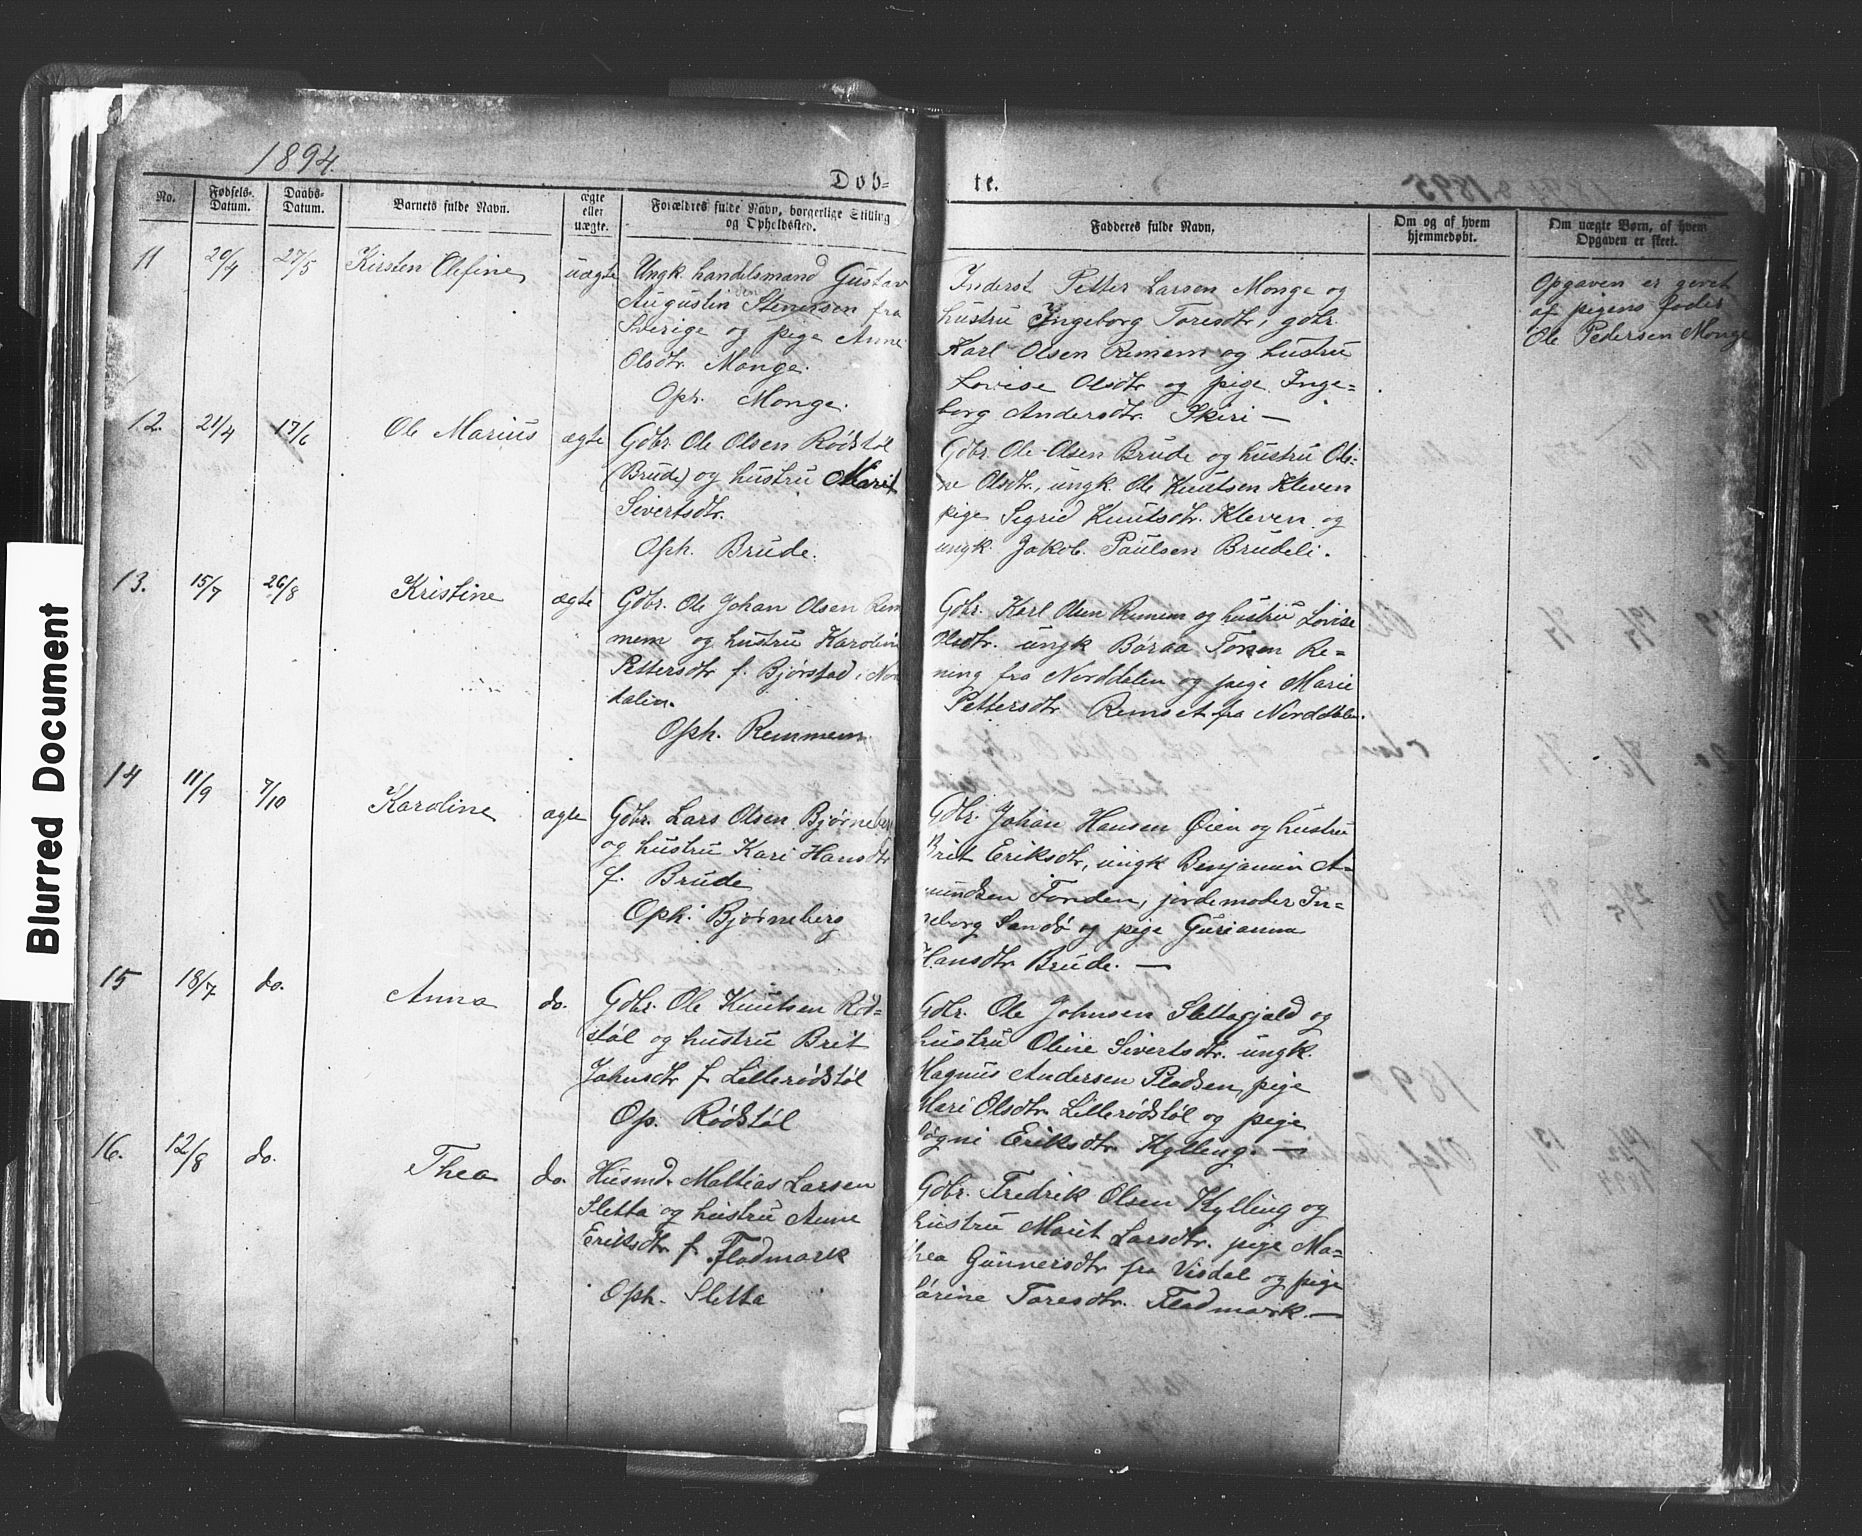 1894.
Døb-
te.
No.
Fødsels-Datum.
Daabs-Datum.
Barnets fulde Navn.
ægte eller uægte.
Forældres fulde Navn, borgerlige Stilling og Opholdssted.
Fadderes fulde Navn.
Om og af hvem hjemmedøbt.
Om uægte Børn, af hvem Opgaven er skeet.
11 20/4 27/5 Kirsten Olefine uægte
Ungk. handelsmand Gustav
Augustin Stenersen fra
Sverige og pige Anne
Olsdtr. Monge.
Oph. Monge.
Inderst Petter Larsen Monge og
hustru Ingeborg Toresdtr, gdbr.
Karl Olsen Remem og hustru
Lovise Olsdtr og pige Inge=
borg Andersdtr. Skiri —
Opgaven er givet
af pigens fader
Ole Pedersen Monge
12. 21/4 17/6 Ole Marius ægte
Gdbr. Ole Olsen Rødstøl
(Brude) og hustru Marit
Sivertsdtr.
Oph. Brude.
Gdbr. Ole Olsen Brude og hustru Oli-
ne Olsdtr., ungk. Ole Knutsen Kleven
pige Sigrid Knutsdtr. Kleven og
ungk. Jakob Paulsen Brudeli.
13. 15/7 26/8 Kristine ægte
Gdbr. Ole Johan Olsen Rem
mem og hustru Karolin
Pettersdtr f. Bjørstad i Nor
dalen.
Oph. Remmem.
Gdbr. Karl Olsen Remem og hustru Lovise
Olsdtr. ungk Børaa Tonsen Re=
ning fra Norddalen og pige Marie
Pettersdtr Remset fra Norddalen.
14 11/9 7/10 Karoline ægte
Gdbr. Lars Olsen Bjørneberg
og hustru Kari Hansdtr
f. Brude
Oph. Bjørneberg
Gdbr. Johan Hansen Øien og hustru
Brit Eriksdtr, ungk Benjamin A-
mundsen Fonden, jordemoder In=
geborg Sandø og pige Gurianna
Hansdtr Brude. —
15 18/7 do. Anna do.
Gdbr. Ole Knutsen Rød=
støl og hustru Brit
Johnsdtr f. Lillerødstøl
Op. Rødstøl
Gdbr. Ole Johnsen Slettafjald og
hustru Oline Sivertsdtr. ungk.
Magnus Andersen Pladsen, pige
Mari Olsdtr. Lillerødstøl og pige
Eriksdtr. Kylling. —
16. 12/8 do. Thea do.
Husmd. Mattias Larsen
Sletta og hustru Anne
Eriksdtr f. Fladmark
Oph. Sletta
Gdbr. Fredrik Olsen Kylling og
hustru Marit Larsdtr. pige Ma=
thea Gunnersdtr fra Visdal og pige
Sørine Toresdtr. Fladmark. —
Blurred Document